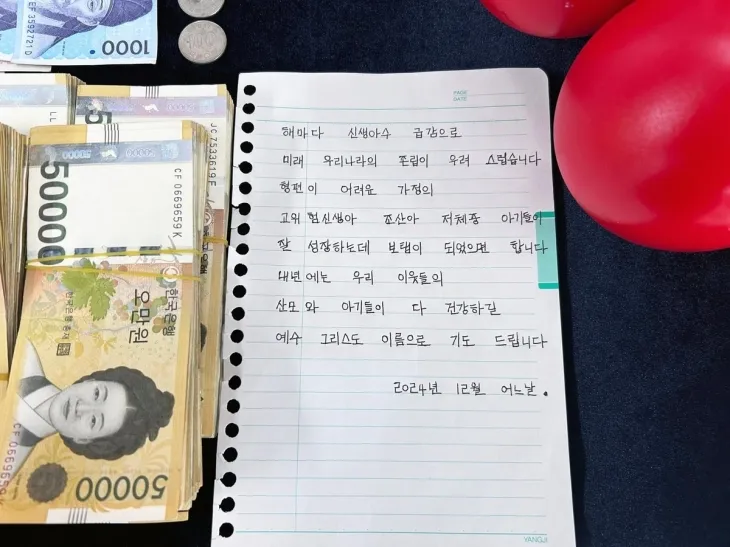 EF 3592721 D
1000
50000
JC 7533619 E
50000
CF 0669659 K
50000
한국은행
오만원
한국은행 총재
CF 0669659 K
50000
PAGE
DATE
해마다 신생아수 급감으로
미래 우리나라의 존립이 우려 스럽습니다
형편이 어려운 가정의
고위험신생아 조산아 저체중 아기들이
잘 성장하는데 보탬이 되었으면 합니다
내년에는 우리 이웃들의
산모와 아기들이 다 건강하길
예수 그리스도 이름으로 기도 드립니다
2024년 12월 어느날.
YANGJI